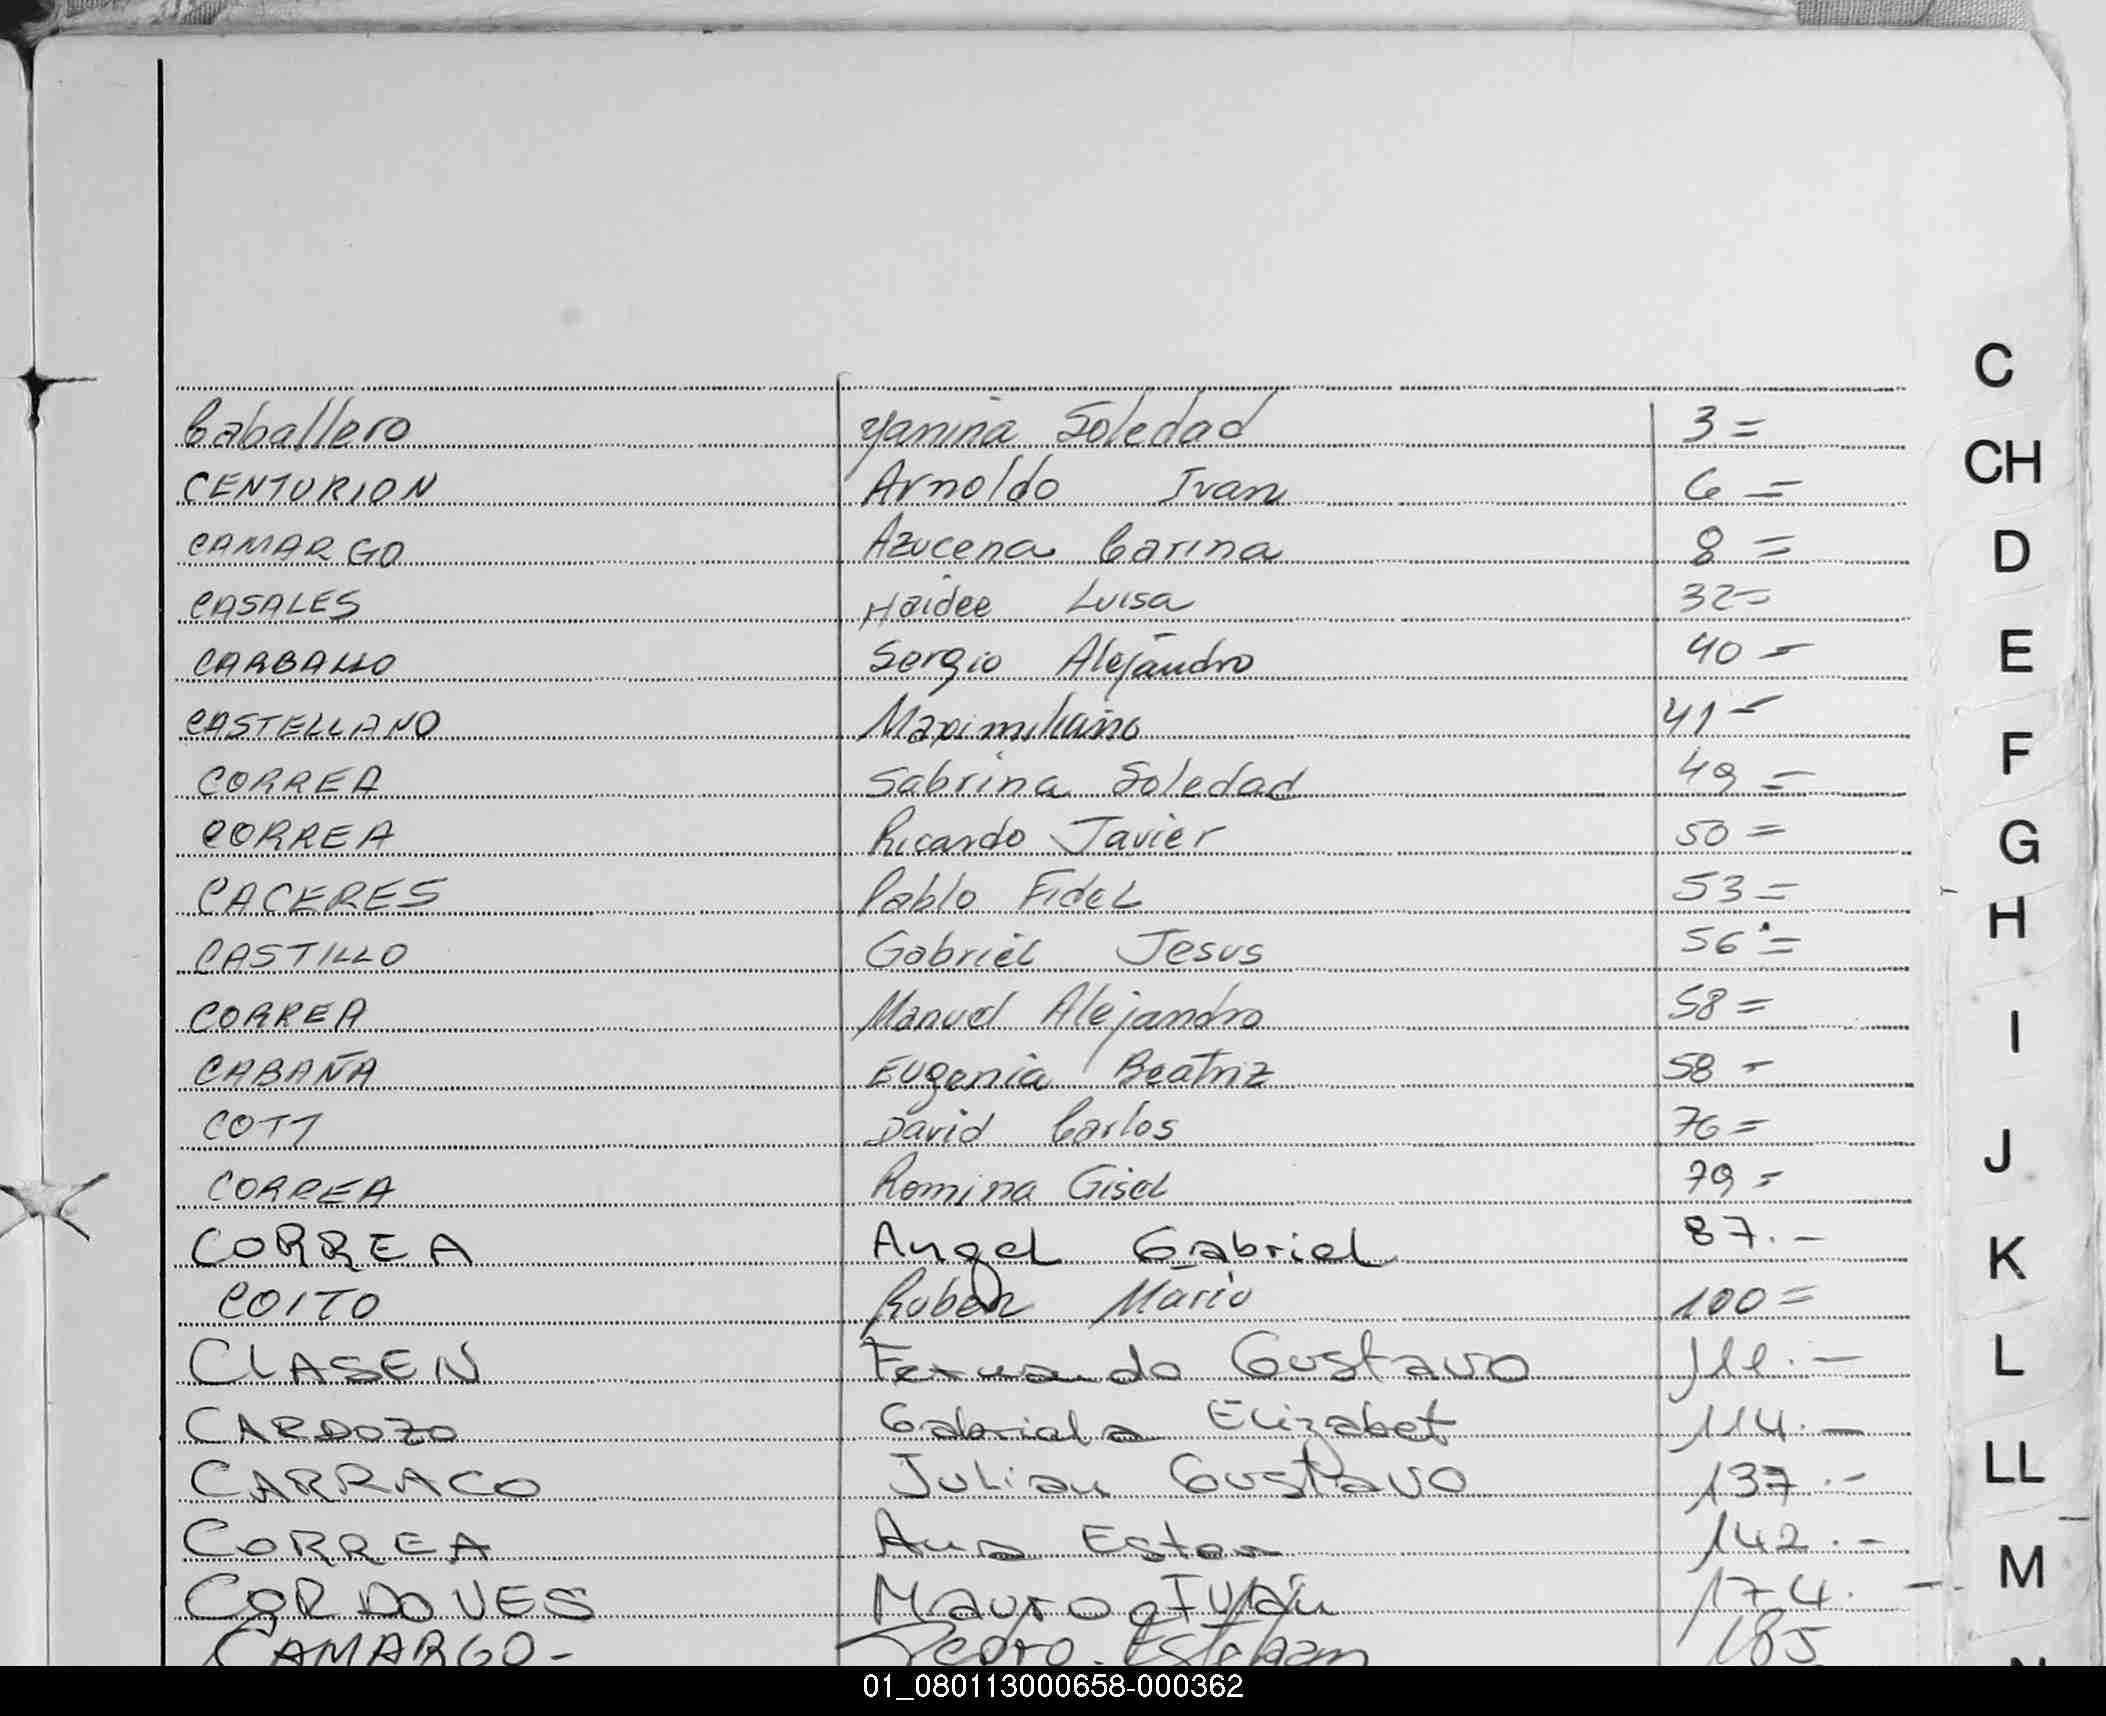 Caballero Yanina Soledad 3=
CENTURION Arnoldo Ivan 6=
CAMARGO Azucena Carina 8=
CASALES Haidee Luisa 32=
CARBALLO Sergio Alejandro 40=
CASTELLANO Maximiliano 41=
CORREA Sabrina Soledad 49=
CORREA Ricardo Javier 50=
CACERES Pablo Fidel 53=
CASTILLO Gabriel Jesus 56=
CORREA Manuel Alejandro 58=
CABAÑA Eugenia Beatriz 58=
COTT David Carlos 76=
CORREA Romina Gisel 79=
CORREA Angel Gabriel 87.-
COITO Ruben Mario 100=
CLASEN Fernando Gustavo 111.-
CARDOZO Gabriela Elizabet 114.-
CARRACO Julian Gustavo 137.-
CORREA Ana Ester 142.-
CORDOVES Mauro Iván 174.-
CAMARGO- Pedro Esteban 185
C
CH
D
E
F
G
H
I
J
K
L
LL
M
01_080113000658-000362